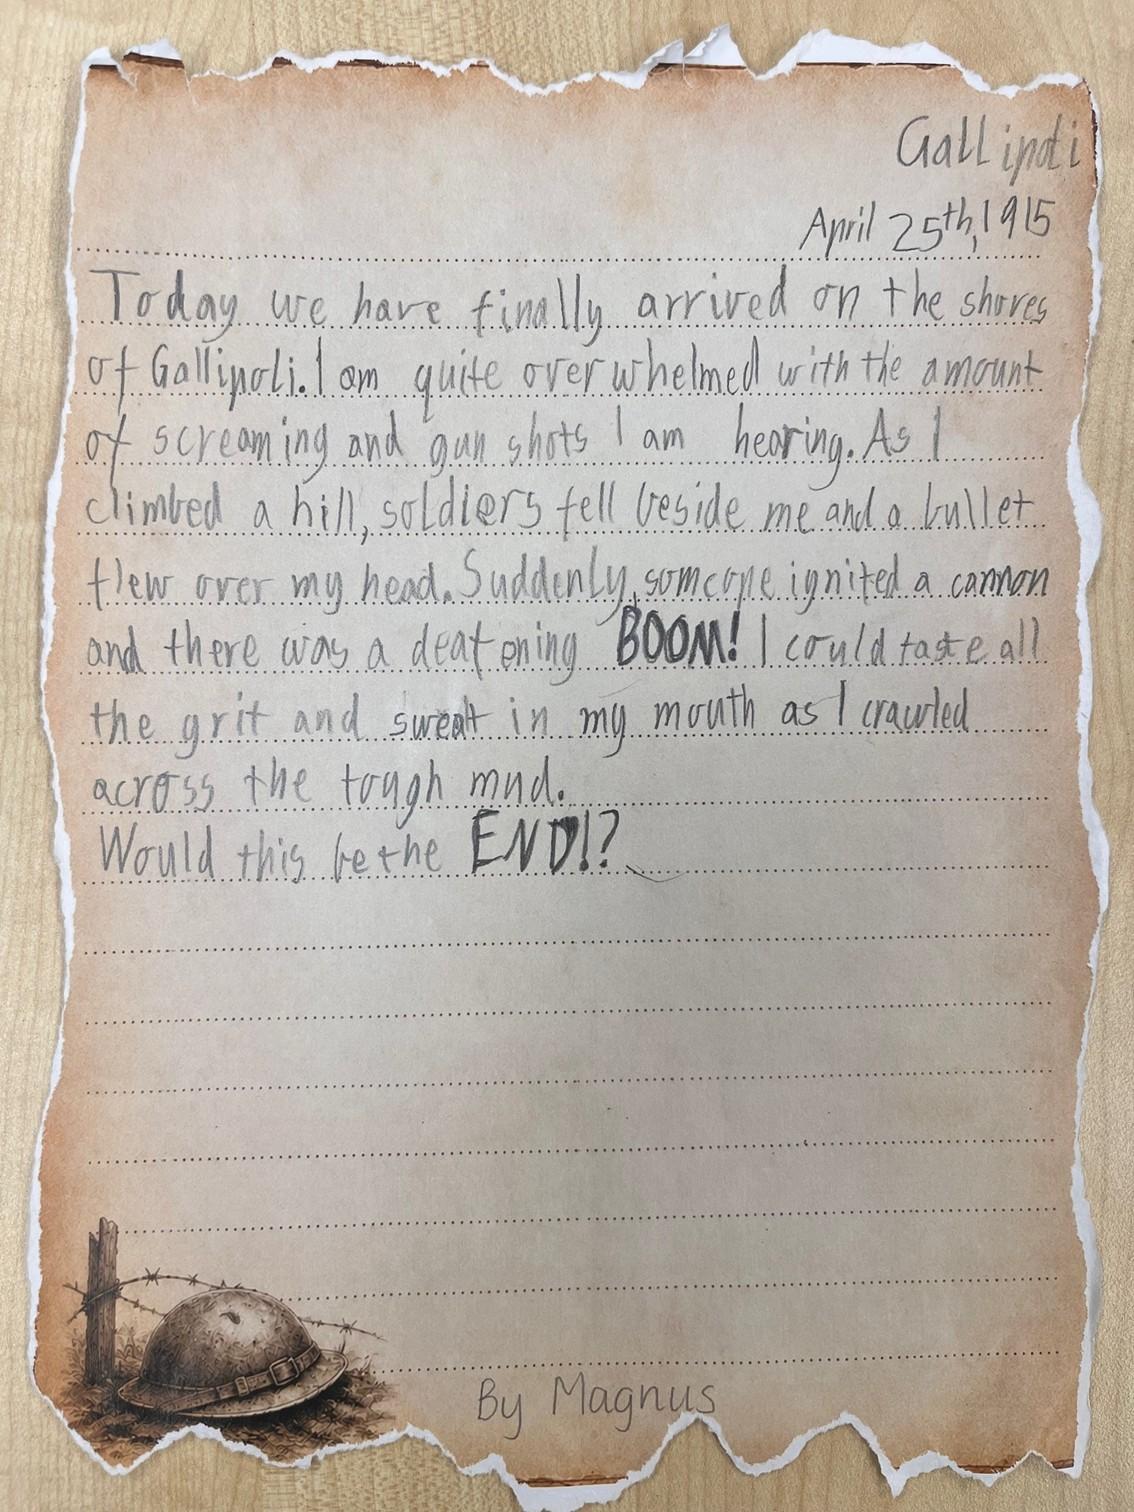 Gallipoli
April 25th, 1915
Today we have finally arrived on the shores
of Gallipoli. I am quite overwhelmed with the amount
of screaming and gun shots I am hearing. As I
climbed a hill, soldiers fell beside me and a bullet
flew over my head. Suddenly, someone ignited a cannon
and there was a deafening BOOM! I could taste all
the grit and sweat in my mouth as I crawled
across the tough mud.
Would this be the END!?
By Magnus